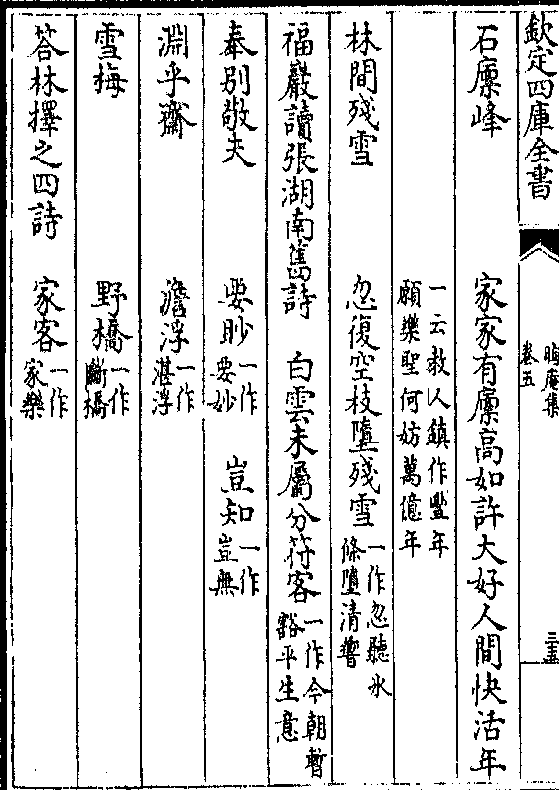 欽定四庫全書
晦庵集
卷五
三五
石廩峰 家家有廩高如許大好人間快活年
一云教人鎮作豐年
願樂聖何妨萬億年
林間殘雪 忽復空枝墮殘雪一作忽聽氷
條墮清響
福巖讀張湖南舊詩 白雲未屬分符客一作今朝暫
豁平生意
奉別敬夫 要眇一作
要妙 豈知一作
豈無
淵乎齋 澹浮一作
湛浮
雪梅 野橋一作
斷橋
荅林擇之四詩 家客一作
家樂